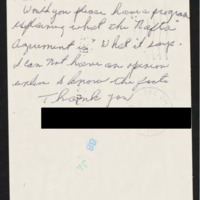 Would you please have a program
explaining what the "Nafta"
Agreement is? What it says.
I can not have an opinion
unless I know the facts
Thank you